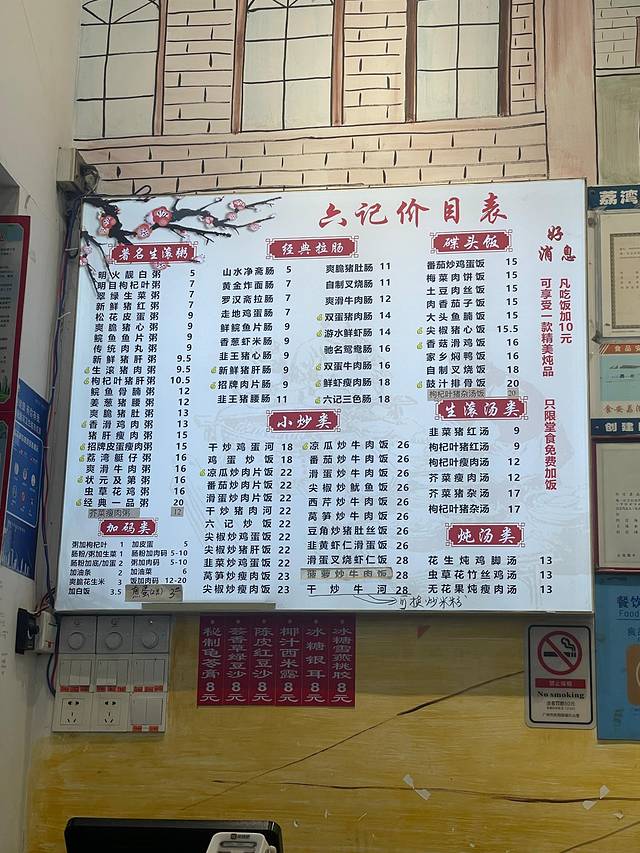 六记价目表
著名生滚粥
明火靓白粥 5
明目枸杞叶粥 7
翠绿生菜粥 7
新鲜猪红粥 7
松花皮蛋粥 9
爽脆猪心粥 9
鲮鱼鱼片粥 9
传统肉丸粥 9
新鲜猪肝粥 9.5
生滚猪肉粥 9.5
枸杞叶猪肝粥 10.5
鲩鱼骨腩粥 12
姜葱猪腰粥 12
爽脆猪肚粥 13
香滑鸡肉粥 13
猪肝瘦肉粥 15
招牌皮蛋瘦肉粥 15
荔湾艇仔粥 16
爽滑牛肉粥 16
状元及第粥 16
虫草花鸡粥 16
经典一品粥 20
芥菜瘦肉粥 12
加码类
粥加枸杞叶 1
肠粉/粥加生菜 1
肠粉加底/加蛋 2
加油条 2
爽脆花生米 3
加白饭 3.5
加皮蛋 5
肠粉加肉码 5-10
粥加肉码 5-10
加油菜 6
饭加肉码 12-20
经典拉肠
山水净斋肠 5
黄金炸面肠 7
罗汉斋拉肠 7
走地鸡蛋肠 7
鲜鲩鱼片肠 9
香葱虾米肠 9
韭王猪心肠 9
新鲜猪肝肠 9
招牌肉片肠 9
韭王猪腰肠 11
爽脆猪肚肠 11
自制叉烧肠 11
爽滑牛肉肠 12
双蛋猪肉肠 14
游水鲜虾肠 14
驰名鸳鸯肠 16
双蛋牛肉肠 16
鲜虾瘦肉肠 18
六记三色肠 18
小炒类
干炒鸡蛋河 18
鸡蛋炒饭 18
凉瓜炒肉片饭 22
番茄炒肉片饭 22
滑蛋炒肉片饭 22
干炒猪肉河 22
六记炒饭 22
尖椒炒鸡蛋饭 22
尖椒炒猪肝饭 22
韭菜炒鸡蛋饭 22
莴笋炒瘦肉饭 23
尖椒炒瘦肉饭 23
凉瓜炒牛肉饭 26
番茄炒牛肉饭 26
滑蛋炒牛肉饭 26
尖椒炒鱿鱼饭 26
西芹炒牛肉饭 26
莴笋炒牛肉饭 26
豆角炒猪肚丝饭 26
韭黄虾仁滑蛋饭 26
滑蛋叉烧虾仁饭 28
菠萝炒牛肉饭 28
干炒牛河 28
可换炒米粉
碟头饭
番茄炒鸡蛋饭 15
梅菜肉饼饭 15
土豆肉丝饭 15
肉香茄子饭 15
大头鱼腩饭 15
尖椒猪心饭 15.5
香菇滑鸡饭 16
家乡焖鸭饭 16
自制叉烧饭 18
豉汁排骨饭 20
枸杞叶猪杂汤饭 20
生滚汤类
韭菜猪红汤 9
枸杞叶猪红汤 9
枸杞叶瘦肉汤 12
芥菜瘦肉汤 12
芥菜猪杂汤 17
枸杞叶猪杂汤 17
炖汤类
花生炖鸡脚汤 13
虫草花竹丝鸡汤 13
无花果炖瘦肉汤 13
好消息
凡吃饭加10元
可享受一款精美炖品
只限堂食免费加饭
秘制龟苓膏 8元
芸香草绿豆沙 8元
陈皮红豆沙 8元
椰汁西米露 8元
冰糖银耳 8元
冰糖雪燕桃胶 8元
禁止吸烟
No smoking
荔湾
创建
餐饮
Food